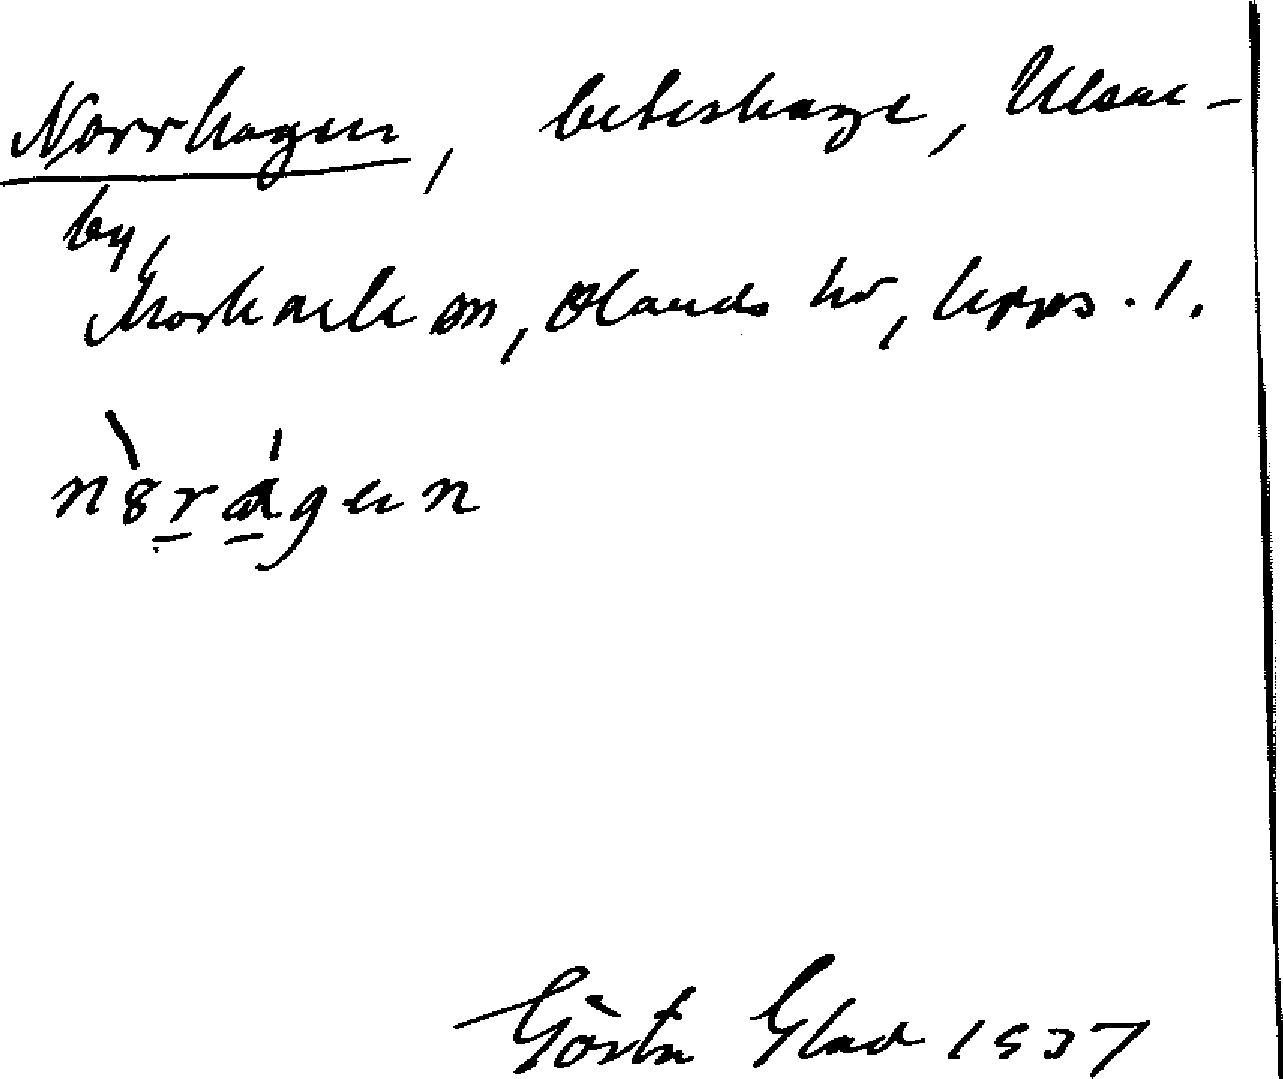 Norrhagen, beteshage, Ulsae-
by,
Morkarla sn, Olands hd, Upps. l.
Gösta Glad 1937